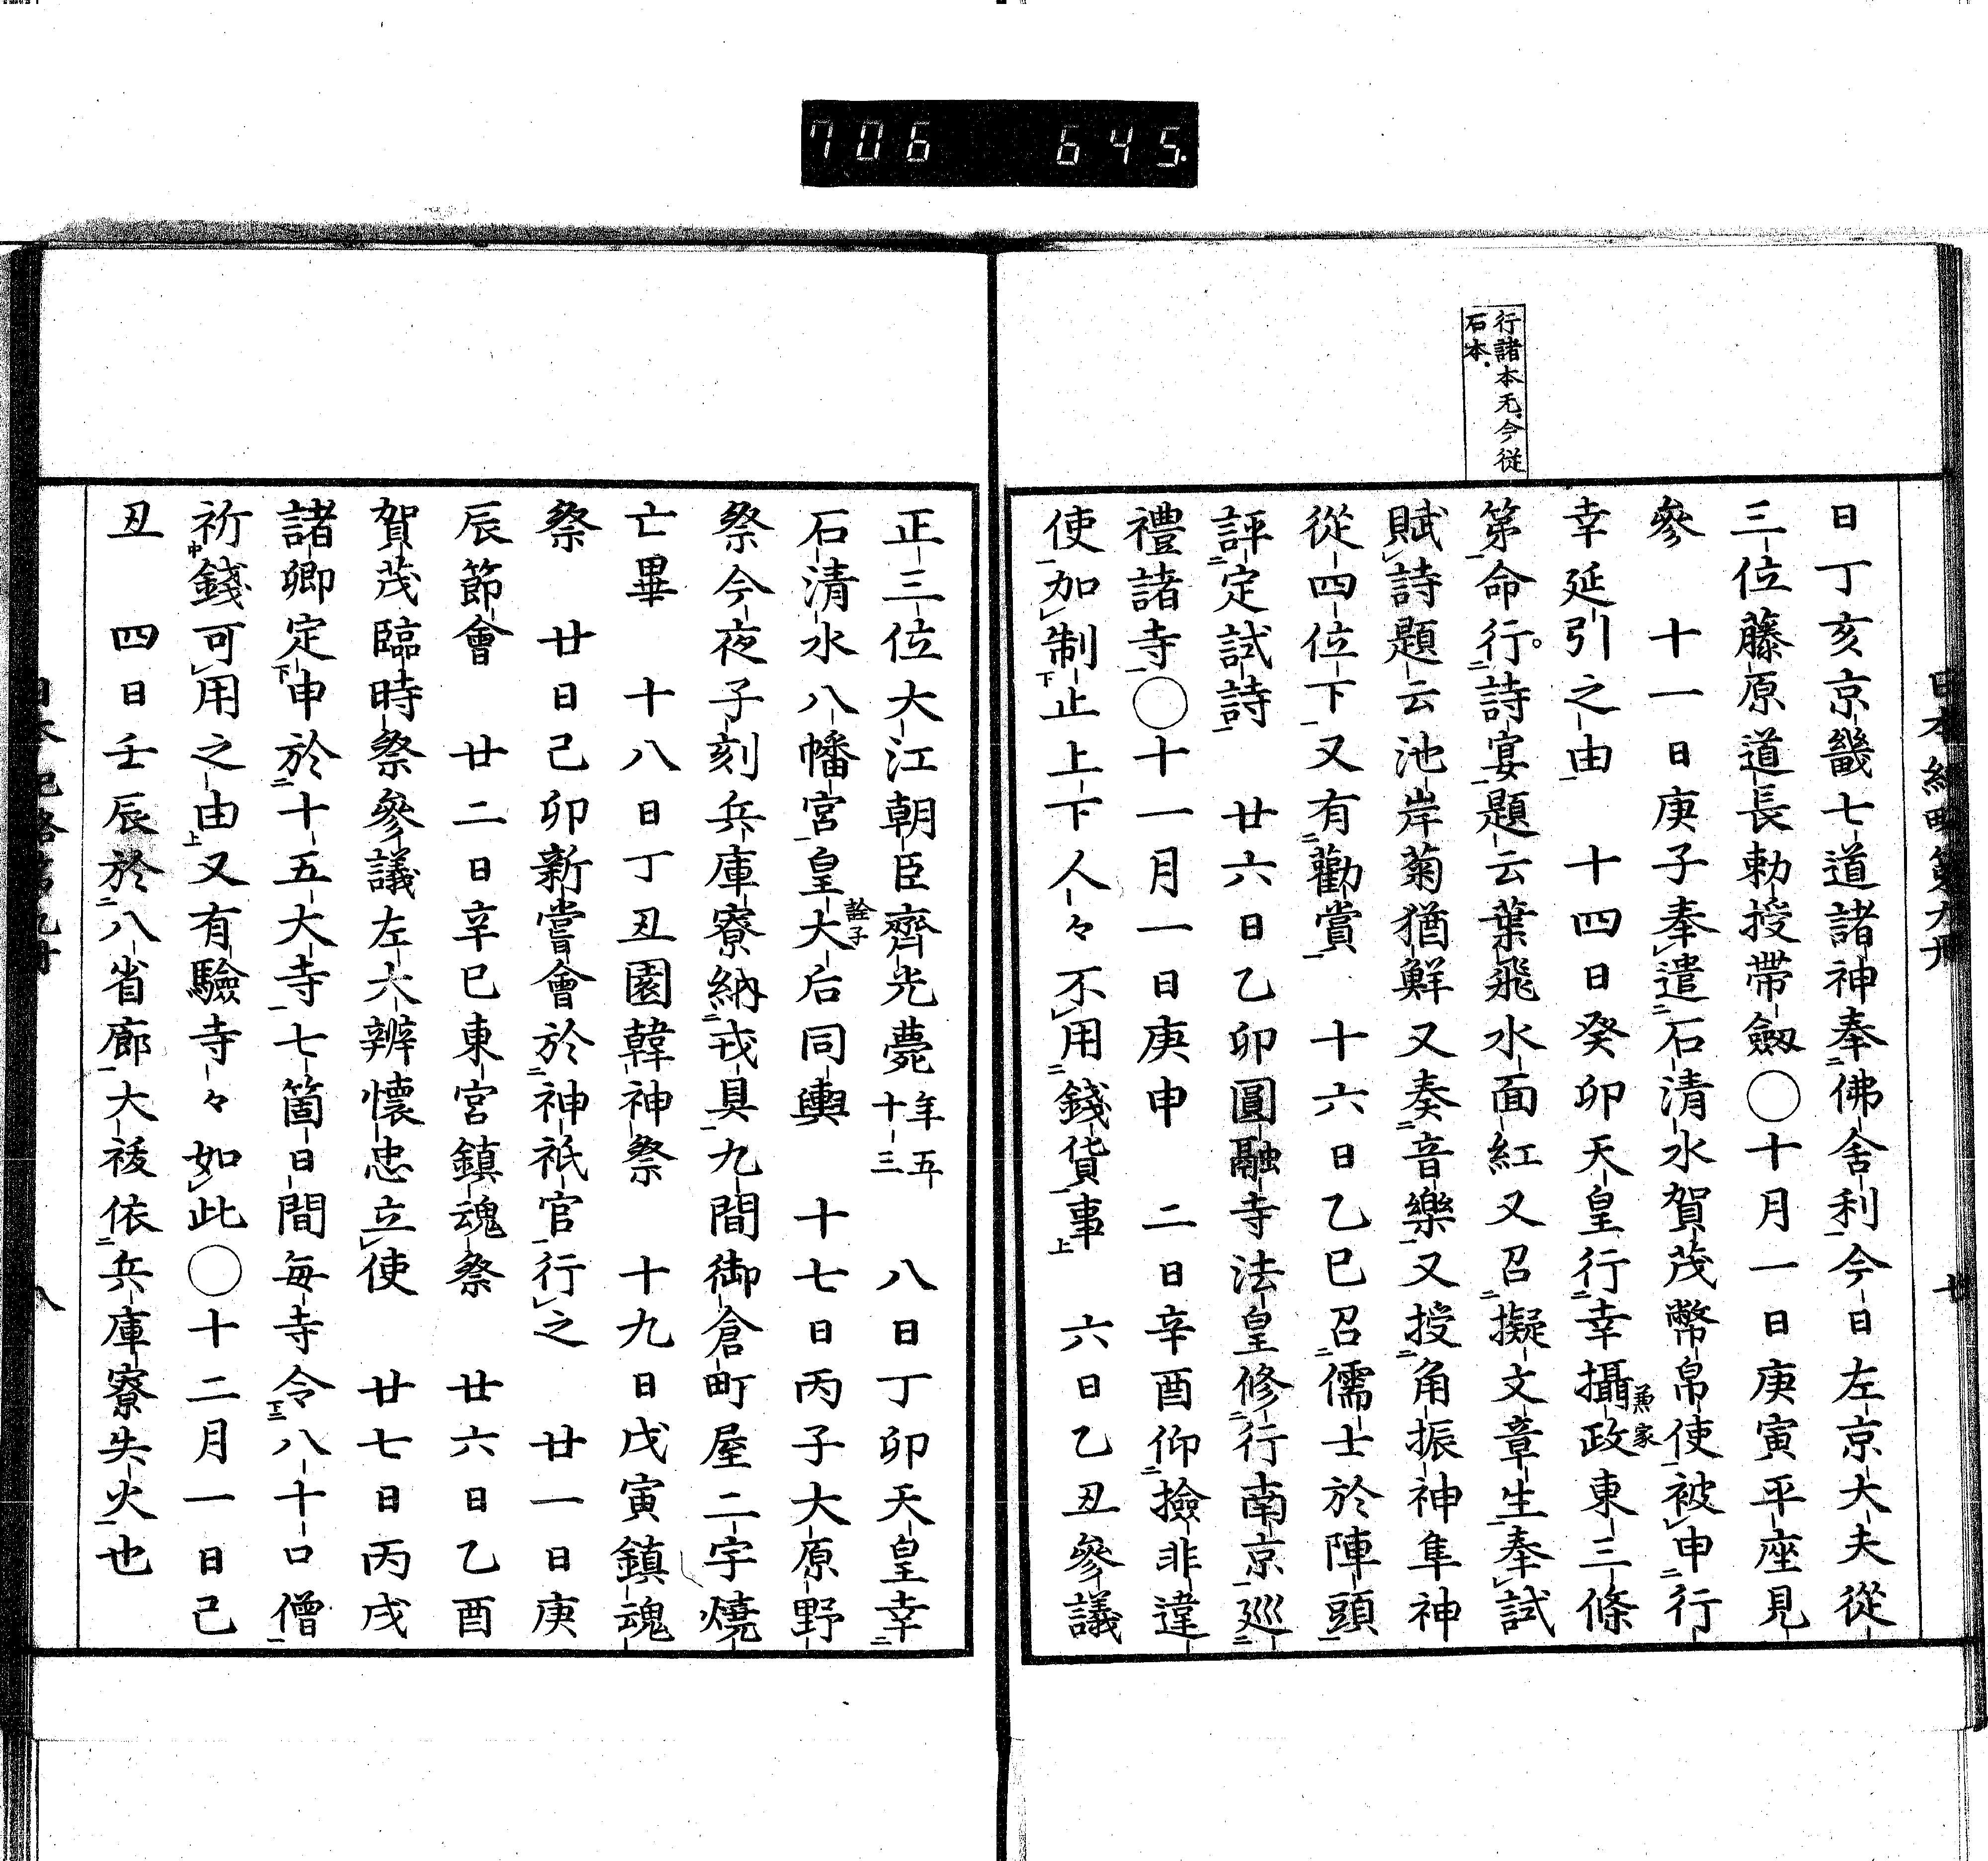 706 645
行諸本无今従
石本
日丁亥京畿七道諸神奉佛舍利今日左京大夫從
三位藤原道長勅授帶劔○十月一日庚寅平座見
參　十一日庚子奉遣石清水賀茂幣帛使被申行
幸延引之由　十四日癸卯天皇行幸攝政兼家東三條
第命行詩宴題云葉飛水面紅又召擬文章生奉試
賦詩題云池岸菊猶鮮又奏音樂又授角振神隼神
從四位下又有勸賞　十六日乙巳召儒士於陣頭
評定試詩　廿六日乙卯圓融寺法皇修行南京巡
禮諸寺○十一月一日庚申　二日辛酉仰撿非違
使加制止上下人々不用錢貨事　六日乙丑參議
正三位大江朝臣齊光薨年五十三　八日丁卯天皇幸
石清水八幡宮皇大后詮子同輿　十七日丙子大原野
祭今夜子刻兵庫寮納戎具九間御倉町屋二宇燒
亡畢　十八日丁丑園韓神祭　十九日戊寅鎮魂
祭　廿日己卯新嘗會於神祇官行之　廿一日庚
辰節會　廿二日辛巳東宮鎮魂祭　廿六日乙酉
賀茂臨時祭參議左大辨懷忠立使　廿七日丙戌
諸卿定申於十五大寺七箇日間毎寺令八十口僧
祈錢可用之由又有驗寺々如此○十二月一日己
丑　四日壬辰於八省廊大祓依兵庫寮失火也
八